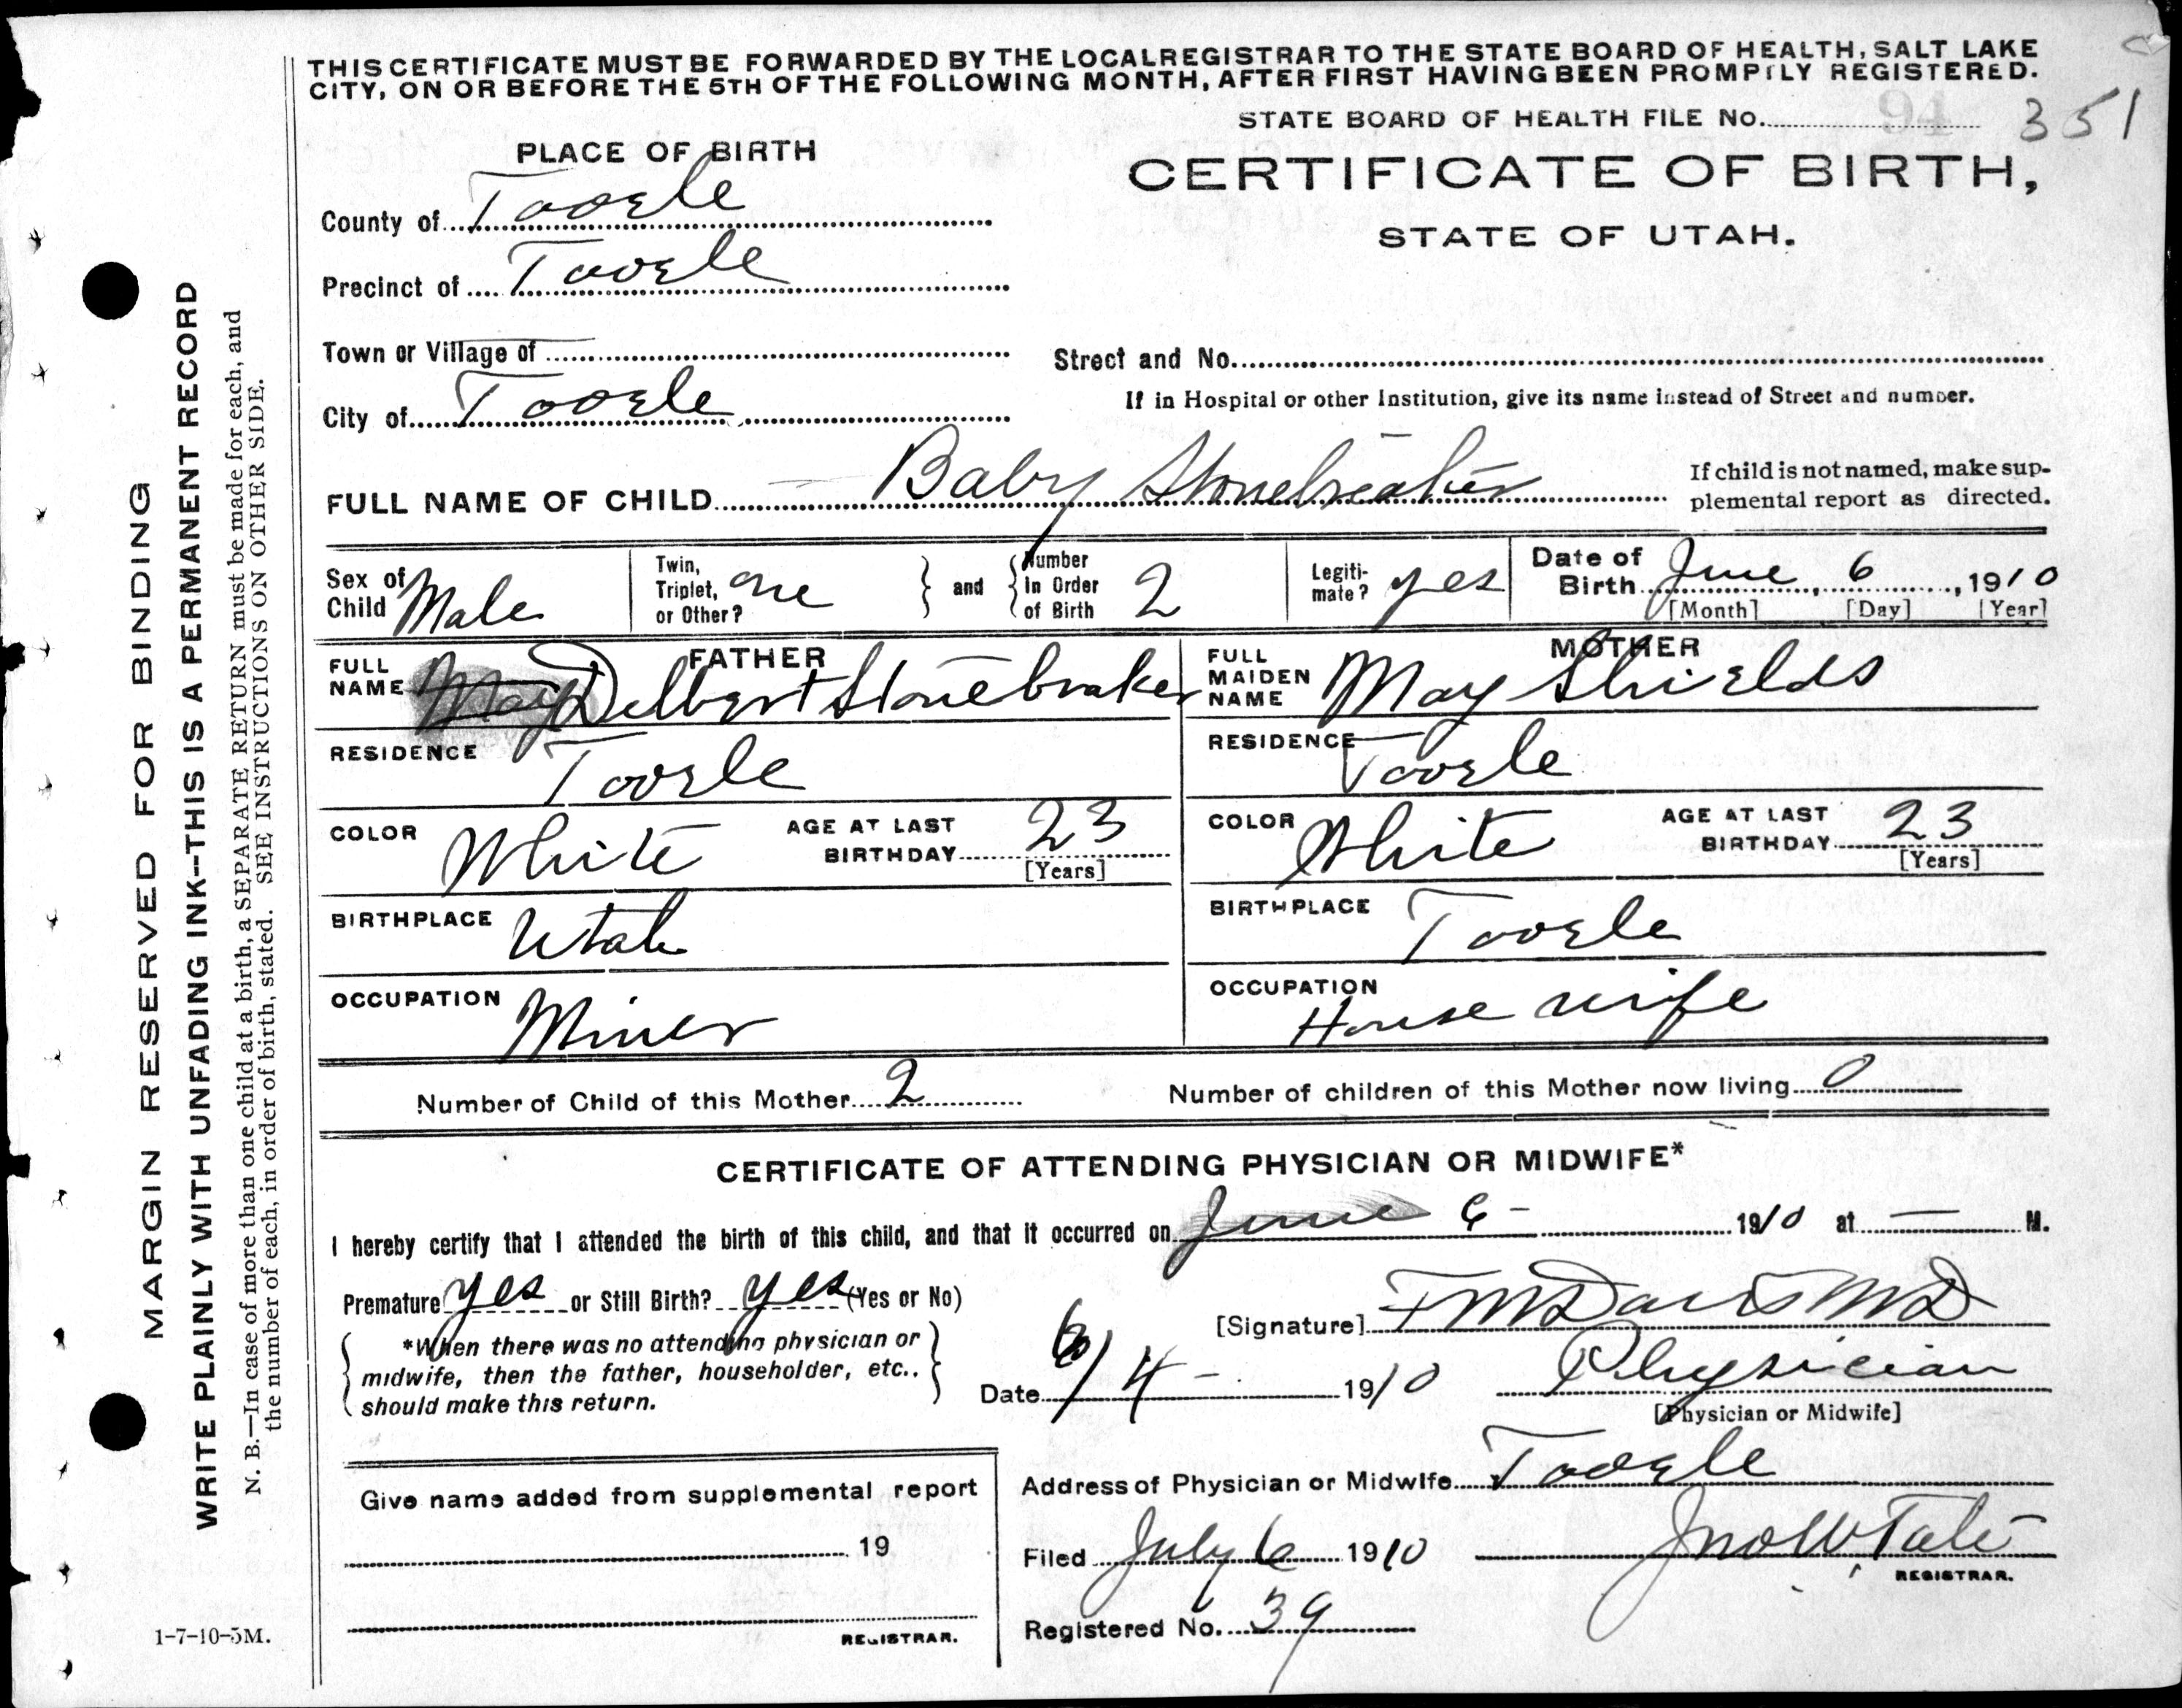 THIS CERTIFICATE MUST BE FORWARDED BY THE LOCAL REGISTRAR TO THE STATE BOARD OF HEALTH, SALT LAKE
CITY, ON OR BEFORE THE 5TH OF THE FOLLOWING MONTH, AFTER FIRST HAVING BEEN PROMPTLY REGISTERED.
STATE BOARD OF HEALTH FILE No. 94 351
PLACE OF BIRTH
CERTIFICATE OF BIRTH,
STATE OF UTAH.
County of Tooele
Precinct of Tooele
Town or Village of
Street and No.
City of Tooele
If in Hospital or other Institution, give its name instead of Street and number.
FULL NAME OF CHILD Baby Stonebreaker
If child is not named, make sup-
plemental report as directed.
Sex of Child Male
Twin, Triplet, or Other? one
and Number In Order of Birth 2
Legiti-
mate? yes
Date of Birth June 6, 1910
[Month] [Day] [Year]
FATHER
FULL NAME May Delbert Stonebraker
RESIDENCE Tooele
COLOR White
AGE AT LAST BIRTHDAY 23
[Years]
BIRTHPLACE Utah
OCCUPATION Miner
MOTHER
FULL MAIDEN NAME May Shields
RESIDENCE Tooele
COLOR White
AGE AT LAST BIRTHDAY 23
[Years]
BIRTHPLACE Tooele
OCCUPATION House wife
Number of Child of this Mother 2
Number of children of this Mother now living 0
CERTIFICATE OF ATTENDING PHYSICIAN OR MIDWIFE*
I hereby certify that I attended the birth of this child, and that it occurred on June 6 - 1910 at — M.
Premature yes or Still Birth? yes (Yes or No)
*When there was no attending physician or
midwife, then the father, householder, etc.,
should make this return.
[Signature] F M Davis MD
Date 6/4 - 1910
Physician
[Physician or Midwife]
Address of Physician or Midwife Tooele
Filed July 6 1910
Jno W. Tate
REGISTRAR.
Registered No. 39
Give name added from supplemental report
19
REGISTRAR.
MARGIN RESERVED FOR BINDING
WRITE PLAINLY WITH UNFADING INK--THIS IS A PERMANENT RECORD
N. B.—In case of more than one child at a birth, a SEPARATE RETURN must be made for each, and
the number of each, in order of birth, stated. SEE INSTRUCTIONS ON OTHER SIDE.
1-7-10-5M.